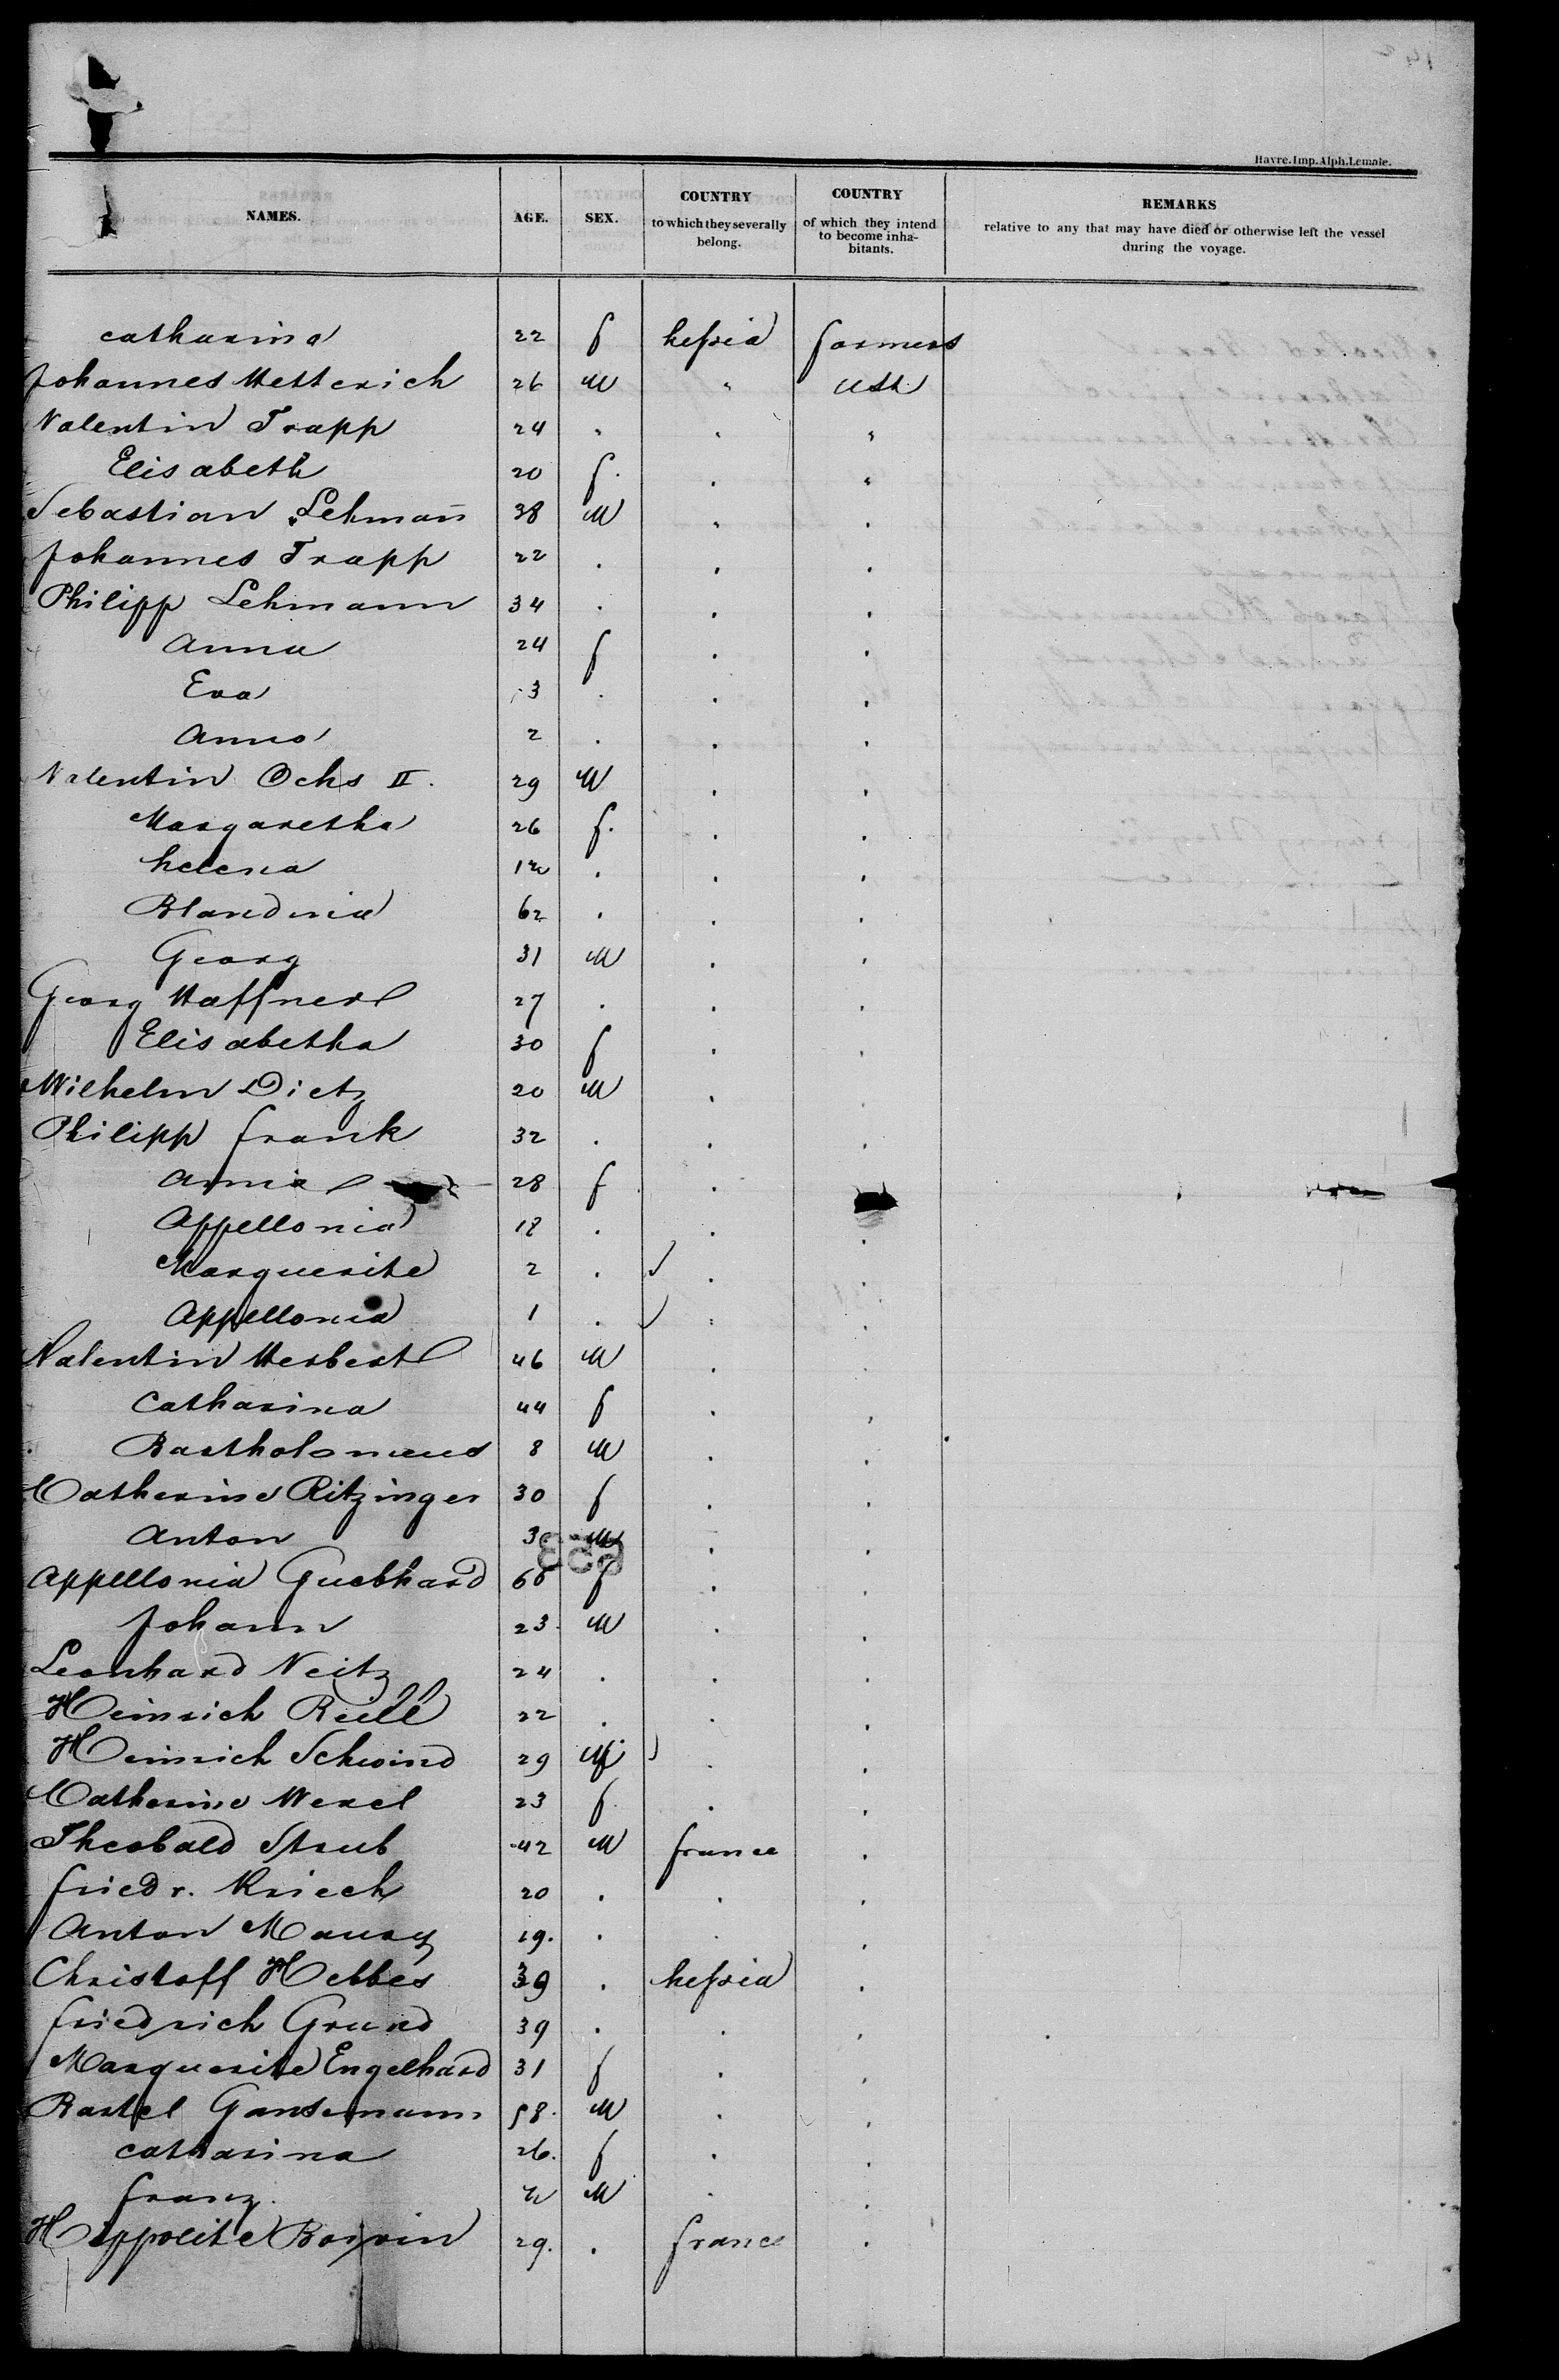 Havre.Imp.Alph.Lemale.
NAMES. AGE. SEX. COUNTRY to which they severally belong. COUNTRY of which they intend to become inha- bitants. REMARKS relative to any that may have died or otherwise left the vessel during the voyage.
catharina 22 f hessia farmers
Johannes Hetterich 26 M " USA
Valentin Trapp 24 " . "
Elisabeth 20 f. . "
Sebastian Lehmañ 38 M " .
Johannes Trapp 22 . . .
Philipp Lehmann 34 . . .
Anna 24 f . .
Eva 3 . . .
Anna 2 . . .
Valentin Ochs II. 29 M . .
Margaretha 26 f. . .
helena 12 . . .
Blandina 62 . . .
Georg 31 M . .
Georg Haffner 27 . . .
Elisabetha 30 f . .
Wilhelm Dietz 20 M . .
Philipp frank 32 . . .
Anna 28 f .
Appellonia 18 . . .
Marguerite 2 . . .
Appellonia 1 . . .
Valentin Herbert 46 M . .
Catharina 44 f . .
Bartholomeus 8 M . .
Catherine Ritzinger 30 f . .
Anton 3 M . .
Appellonia Guebhard f . .
Johann 23. M . .
Leonhard Veitz 24 . . .
Heinrich 22 . . .
Heinrich Schwind 29 M . .
Catherine Wexel 23 f . .
Theobald Strub 42 M france .
friedr. Kriech 20 . . .
Anton Maury 19. . . .
Christoff Hebbes 39 . hessia .
friedrich Grund 39 . . .
Marguerite Engelhard 31 f . .
Bartel Gansemann 58. M . .
catharina 26. f . .
franz. M . .
Hippolite Boivin 29. . france .